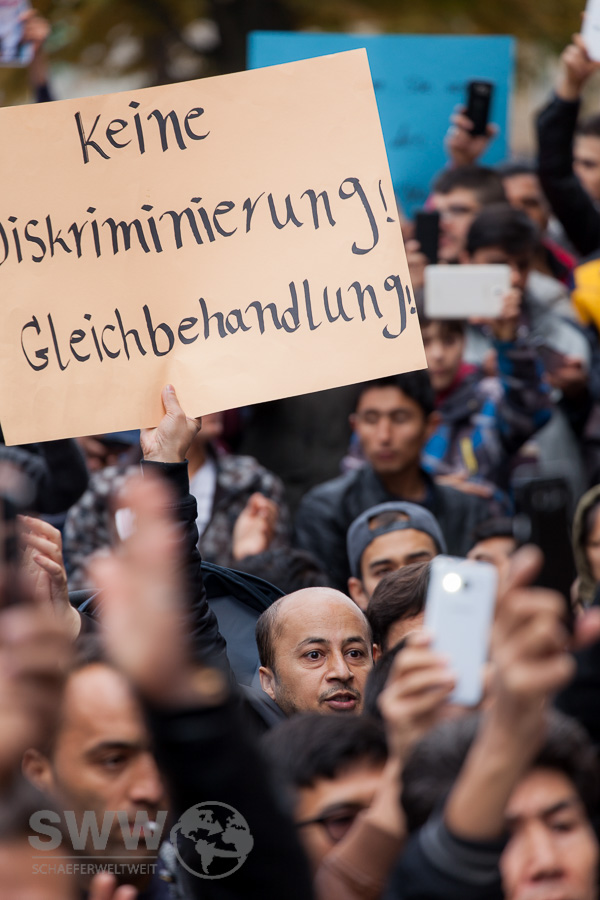 Keine
Diskriminierung!
Gleichbehandlung!
SWW
SCHAEFERWELTWEIT